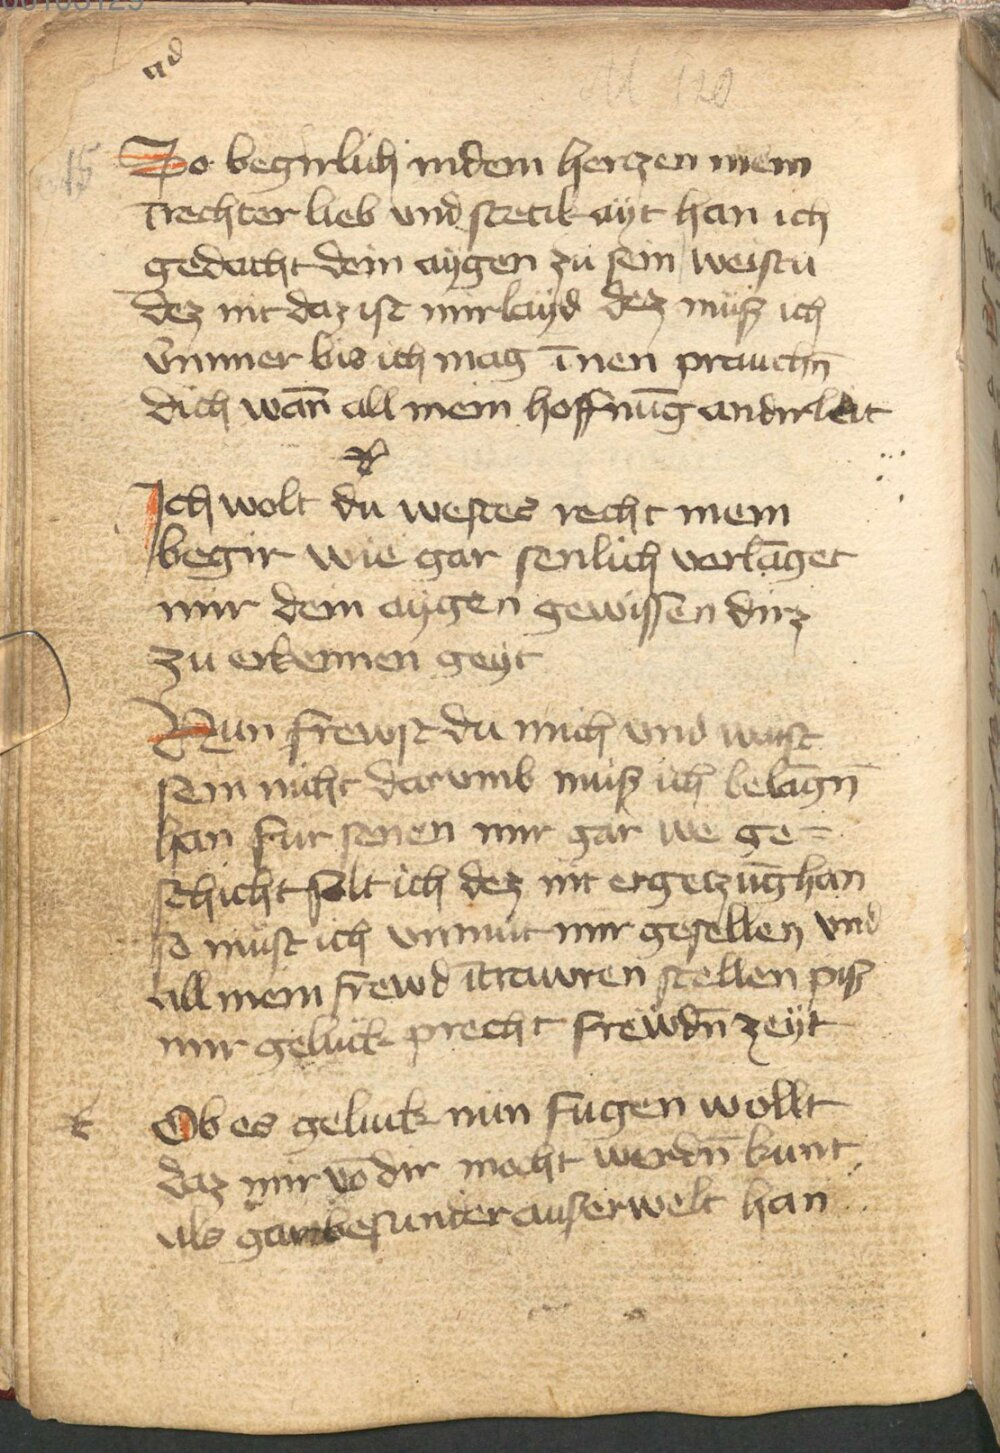 So begirlich in dem hertzen mein
ī rechter lieb vnd stetikayt han ich
gedacht dein aygen zu sein weistu
dez nit daz ist mir layd dez muß ich
ymmer bis ich mag īnen prauchn̄
dich wan̄ all mein hoffnūg an dir leit
Ich wolt du westes recht mein
begir wie gar senlich verlāget
mir dein aygen gewissen dirz
zu erkennen geyt
Nun frewst du mich vnd waist
sein nicht darvmb muß ich belāgn̄
han fur senen mir gar we ge=
schicht solt ich dez nit ergetzūg han
so must ich vnmut mir gesellen vnd
all mein frewd ī trawren stellen piß
mir geluck precht frewdn̄ zeyt
Ob es geluck nun fugen wollt
daz mir vō dir mocht werdn̄ kunt
als gar besunder außerwelt han